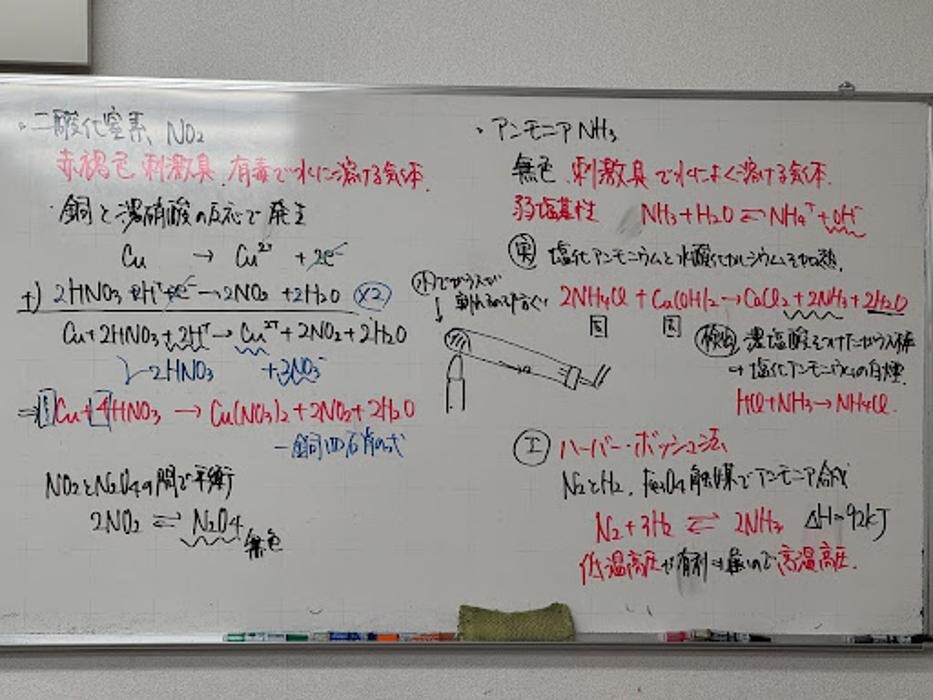 ・二酸化窒素、NO₂
赤褐色 刺激臭、有毒で水に溶ける気体.
・銅と濃硝酸の反応で発生
Cu → Cu²⁺ + 2e⁻
+) 2HNO₃ + 2H⁺ + 2e⁻ → 2NO₂ + 2H₂O (×2)
Cu + 2HNO₃ + 2H⁺ → Cu²⁺ + 2NO₂ + 2H₂O
2HNO₃ +2NO₃⁻
⇒ 1Cu + 4HNO₃ → Cu(NO₃)₂ + 2NO₂ + 2H₂O
一銅四硝の式
NO₂とN₂O₄の間で平衡
2NO₂ ⇌ N₂O₄
無色
・アンモニア NH₃
無色、刺激臭で水によく溶ける気体.
弱塩基性 NH₃ + H₂O ⇌ NH₄⁺ + OH⁻
実 塩化アンモニウムと水酸化カルシウムを加熱.
水でガラスが割れるのを防ぐ
2NH₄Cl + Ca(OH)₂ → CaCl₂ + 2NH₃ + 2H₂O
固 固
検出 濃塩酸をつけたガラス棒
→ 塩化アンモニウムの白煙.
HCl + NH₃ → NH₄Cl.
工 ハーバー・ボッシュ法
N₂とH₂、Fe₃O₄触媒でアンモニア合成
N₂ + 3H₂ ⇌ 2NH₃ ΔH=-92kJ
低温高圧が有利→遅いので高温高圧.